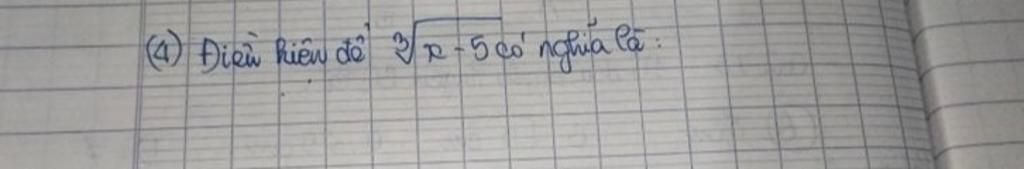 (4) Điều kiện để ∛(x - 5) có nghĩa là: